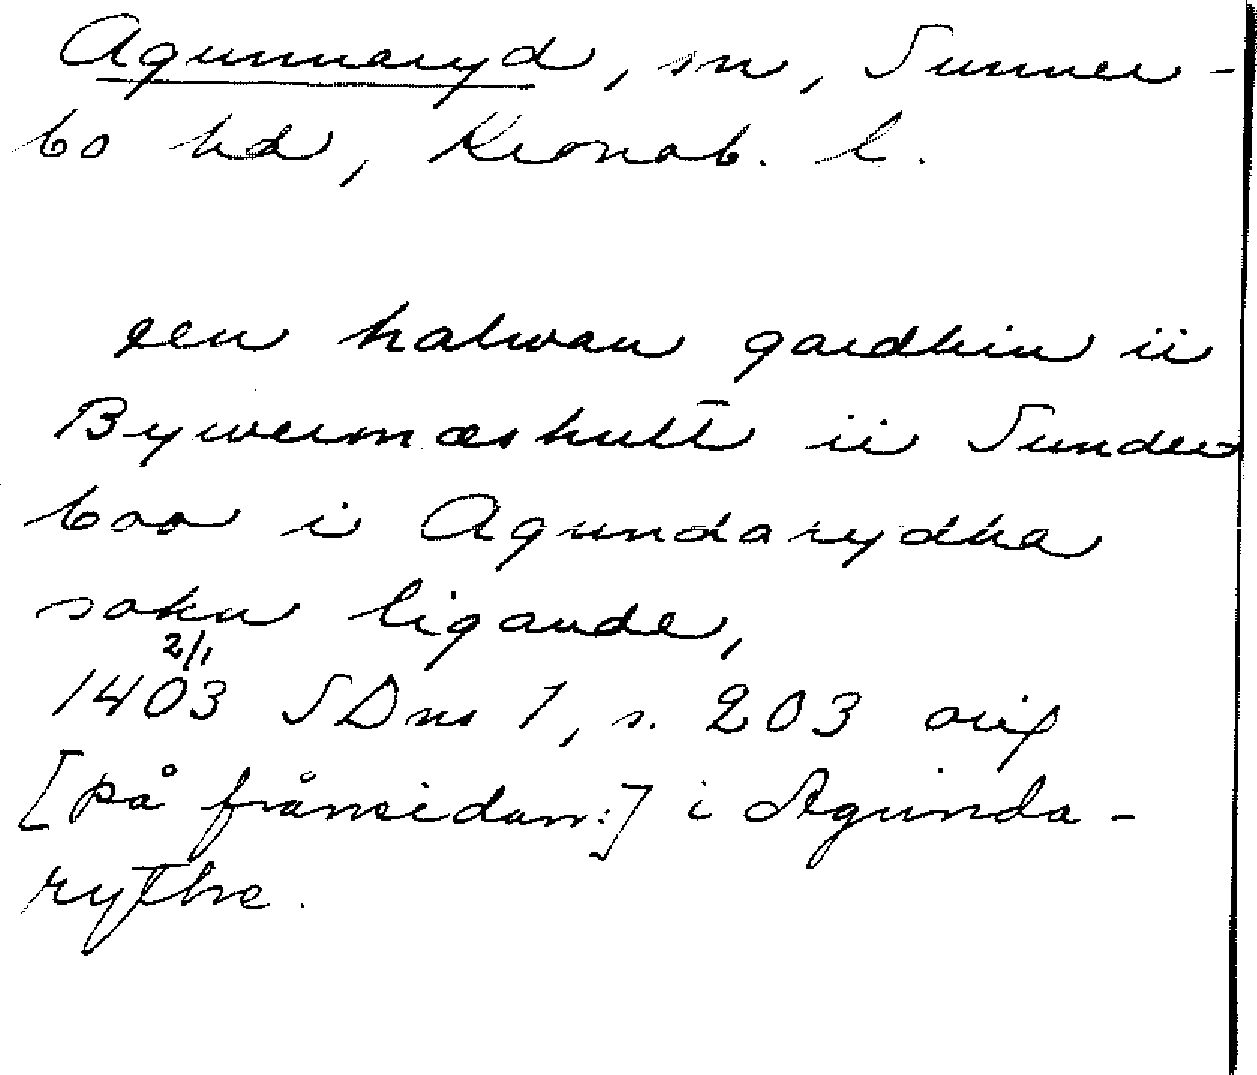 Agunnaryd, sn, Sunner-
bo hd, Kronob. l.
een halwan gardhin ii
Bywermæshult ii Sunder
boo i Agundarydha
sokn ligande,
2/1
1403 SDns 1, s. 203 orig
[på frånsidan:] i Agunda-
rythe.